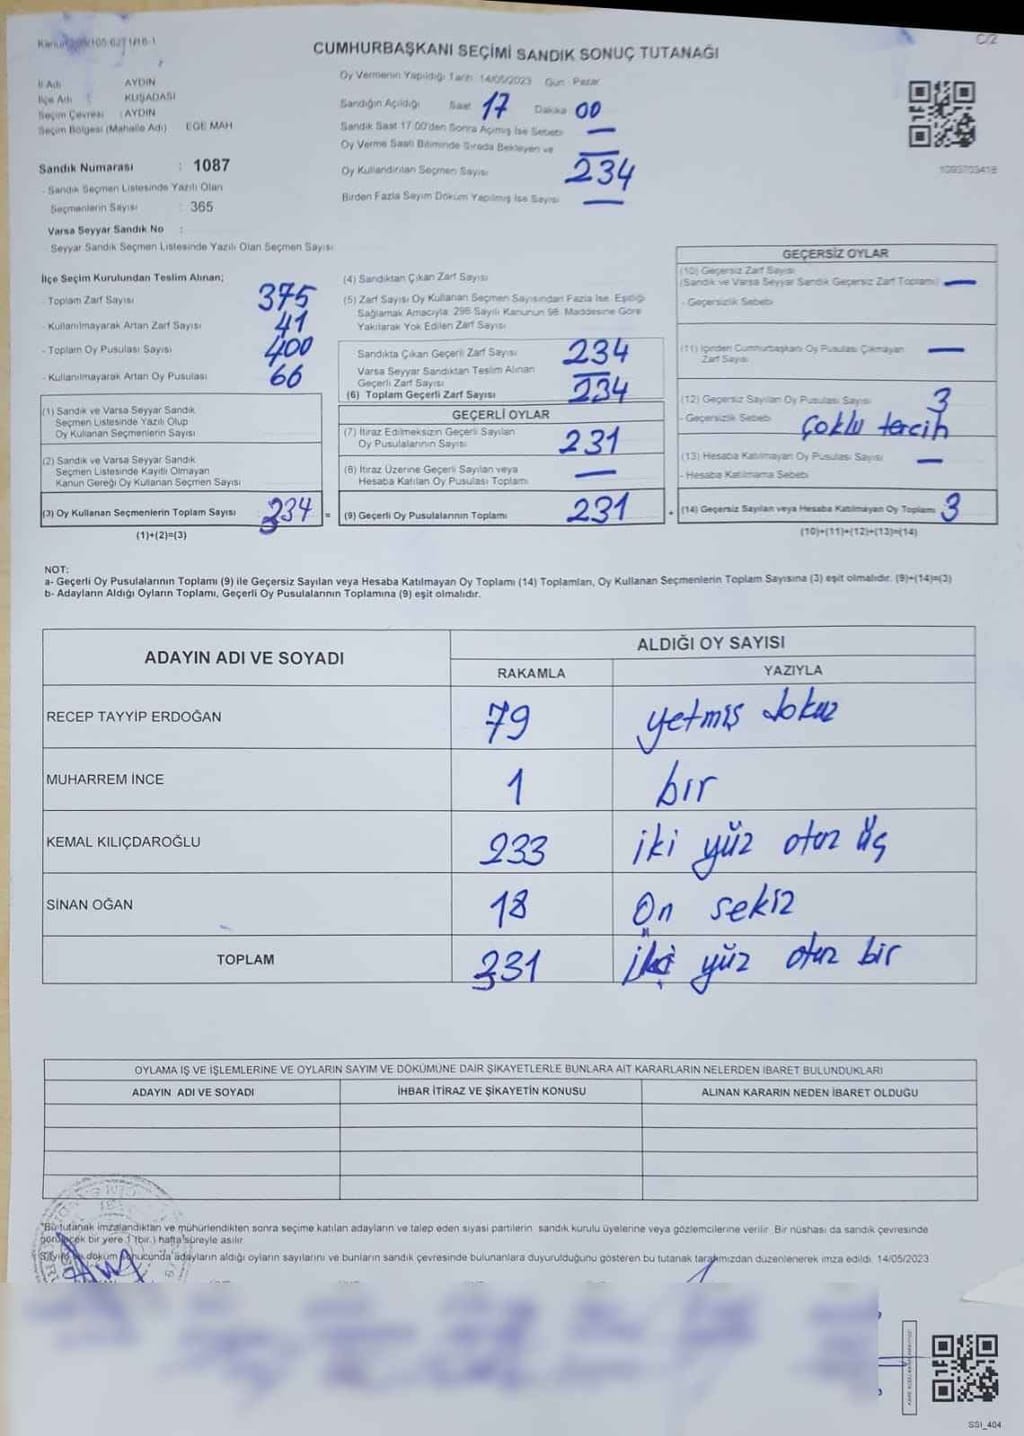 C/2
CUMHURBAŞKANI SEÇİMİ SANDIK SONUÇ TUTANAĞI
Oy Vermenin Yapıldığı Tarih 14/05/2023 Gün Pazar
İl Adı AYDIN
İlçe Adı KUŞADASI
Seçim Çevresi : AYDIN
Seçim Bölgesi (Mahalle Adı) EGE MAH
Sandığın Açıldığı Saat 17 Dakika 00
Sandık Saat 17:00'den Sonra Açılmış İse Sebebi —
Oy Verme Saati Bitiminde Sırada Bekleyen ve
Oy Kullandırılan Seçmen Sayısı — 234
Birden Fazla Sayım Döküm Yapılmış İse Sayısı —
Sandık Numarası : 1087
- Sandık Seçmen Listesinde Yazılı Olan
Seçmenlerin Sayısı : 365
Varsa Seyyar Sandık No :
Seyyar Sandık Seçmen Listesinde Yazılı Olan Seçmen Sayısı
İlçe Seçim Kurulundan Teslim Alınan;
- Toplam Zarf Sayısı 375
- Kullanılmayarak Artan Zarf Sayısı 41
- Toplam Oy Pusulası Sayısı 400
- Kullanılmayarak Artan Oy Pusulası 66
(1) Sandık ve Varsa Seyyar Sandık
Seçmen Listesinde Yazılı Olup
Oy Kullanan Seçmenlerin Sayısı
(2) Sandık ve Varsa Seyyar Sandık
Seçmen Listesinde Kayıtlı Olmayan
Kanun Gereği Oy Kullanan Seçmen Sayısı
(3) Oy Kullanan Seçmenlerin Toplam Sayısı 234 =
(1)+(2)=(3)
(4) Sandıktan Çıkan Zarf Sayısı
(5) Zarf Sayısı Oy Kullanan Seçmen Sayısından Fazla İse, Eşitliği
Sağlamak Amacıyla, 298 Sayılı Kanunun 98. Maddesine Göre
Yakılarak Yok Edilen Zarf Sayısı
Sandıkta Çıkan Geçerli Zarf Sayısı 234
Varsa Seyyar Sandıktan Teslim Alınan
Geçerli Zarf Sayısı —
(6) Toplam Geçerli Zarf Sayısı 234
GEÇERLİ OYLAR
(7) İtiraz Edilmeksizin Geçerli Sayılan
Oy Pusulalarının Sayısı 231
(8) İtiraz Üzerine Geçerli Sayılan veya
Hesaba Katılan Oy Pusulası Toplamı —
(9) Geçerli Oy Pusulalarının Toplamı 231 +
GEÇERSİZ OYLAR
(10) Geçersiz Zarf Sayısı
(Sandık ve Varsa Seyyar Sandık Geçersiz Zarf Toplamı) —
- Geçersizlik Sebebi
(11) İçinden Cumhurbaşkanı Oy Pusulası Çıkmayan
Zarf Sayısı —
(12) Geçersiz Sayılan Oy Pusulası Sayısı 3
- Geçersizlik Sebebi çoklu tercih
(13) Hesaba Katılmayan Oy Pusulası Sayısı —
- Hesaba Katılmama Sebebi
(14) Geçersiz Sayılan veya Hesaba Katılmayan Oy Toplamı 3
(10)+(11)+(12)+(13)=(14)
NOT:
a- Geçerli Oy Pusulalarının Toplamı (9) ile Geçersiz Sayılan veya Hesaba Katılmayan Oy Toplamı (14) Toplamları, Oy Kullanan Seçmenlerin Toplam Sayısına (3) eşit olmalıdır. (9)+(14)=(3)
b- Adayların Aldığı Oyların Toplamı, Geçerli Oy Pusulalarının Toplamına (9) eşit olmalıdır.
ADAYIN ADI VE SOYADI ALDIĞI OY SAYISI
RAKAMLA YAZIYLA
RECEP TAYYİP ERDOĞAN 79 yetmiş dokuz
MUHARREM İNCE 1 bır
KEMAL KILIÇDAROĞLU 233 iki yüz otuz üç
SİNAN OĞAN 18 On sekiz
TOPLAM 231 iki yüz otuz bir
OYLAMA İŞ VE İŞLEMLERİNE VE OYLARIN SAYIM VE DÖKÜMÜNE DAİR ŞİKAYETLERLE BUNLARA AİT KARARLARIN NELERDEN İBARET BULUNDUKLARI
ADAYIN ADI VE SOYADI İHBAR İTİRAZ VE ŞİKAYETİN KONUSU ALINAN KARARIN NEDEN İBARET OLDUĞU
*Bu tutanak imzalandıktan ve mühürlendikten sonra seçime katılan adayların ve talep eden siyasi partilerin sandık kurulu üyelerine veya gözlemcilerine verilir. Bir nüshası da sandık çevresinde
görülecek bir yere 1 (bir) hafta süreyle asılır.
döküm sonucunda adayların aldığı oyların sayılarını ve bunların sandık çevresinde bulunanlara duyurulduğunu gösteren bu tutanak tarafımızdan düzenlenerek imza edildi. 14/05/2023
SSI_404